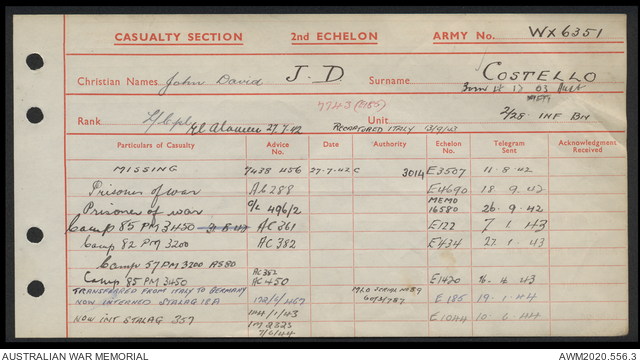 CASUALTY SECTION 2nd ECHELON ARMY No. WX6351
Christian Names John David J. D Surname COSTELLO
7743 (BBS)
Rank L/Cpl Unit 2/28 INF BN
El Alamein 27.7.42 RECAPTURED ITALY 13/9/43
Particulars of Casualty Advice No. Date Authority Echelon No. Telegram Sent Acknowledgment Received
MISSING 7438 4156 27-7-42 C 3014 E3507 11.8.42
Prisoner of war AC288 E4690 18.9.42
Prisoner of war 496/2 MEMO 16580 26.9.42
Camp 85 PM 3450 AC361 E122 7.1.43
Camp 82 PM 3200 AC382 E434 27.1.43
Camp 57 PM 3200 A580
AC382
Camp 85 PM 3450 AC450 E1420 16.4.43
TRANSFERRED FROM ITALY TO GERMANY
NOW INTERNED STALAG 18A E185 19.1.44
104/1/43
NOW INT STALAG 357 E1044 10.6.44
7/6/44
AUSTRALIAN WAR MEMORIAL AWM2020.556.3